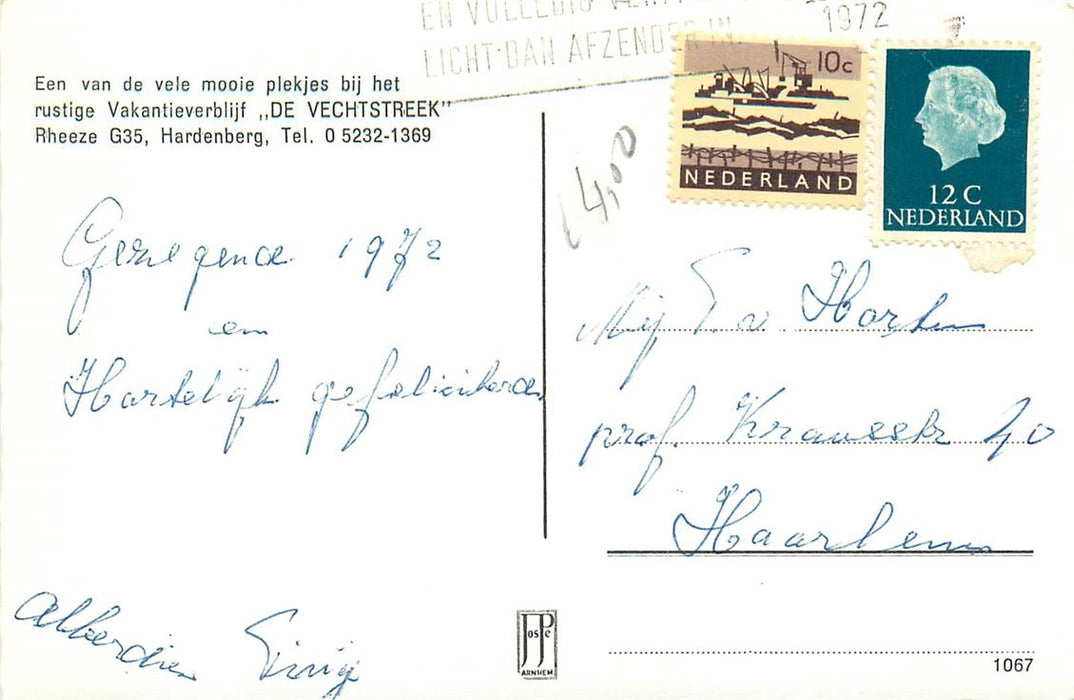 EN VOLLEDIG
1972
LICHT DAN AFZENDER IN
Een van de vele mooie plekjes bij het
rustige Vakantieverblijf „DE VECHTSTREEK"
Rheeze G35, Hardenberg, Tel. 0 5232-1369
10c
NEDERLAND
12 C
NEDERLAND
14,00
Gezegende 1972
en
Hartelijk gefeliciteerd
Alberdien
Mej T. v. Horsten
prof. Krausstr 40
Haarlem
JosPe
ARNHEM
1067